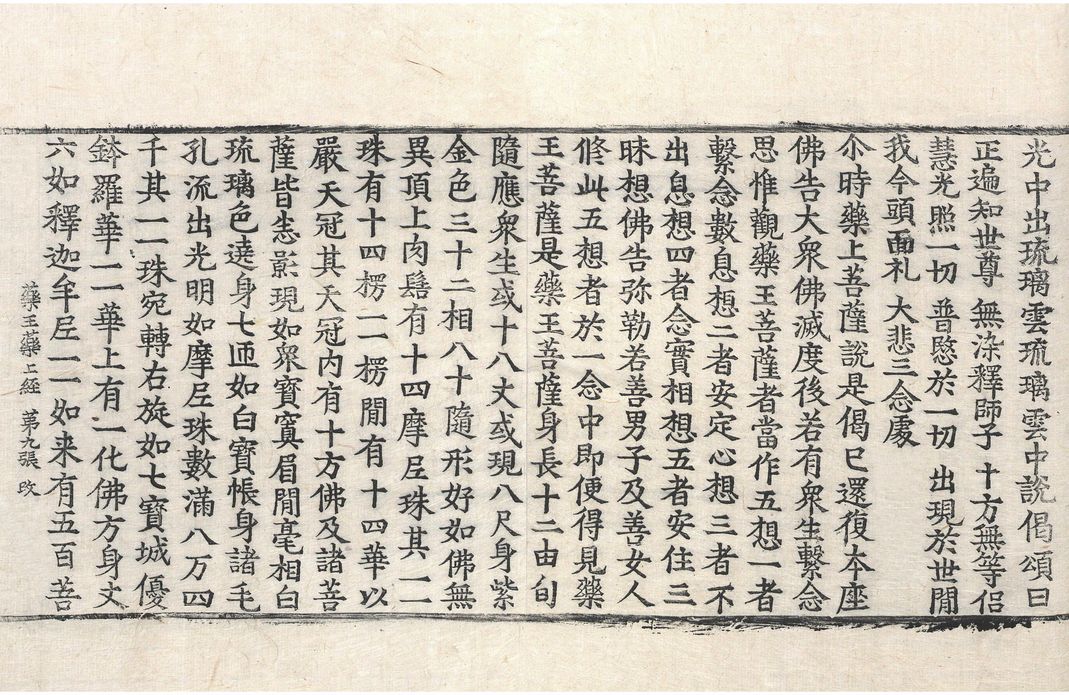 光中出琉璃雲琉璃雲中說偈頌曰
正遍知世尊 無染釋師子 十方無等侣
慧光照一切 普愍於一切 出現於世閒
我今頭面礼 大悲三念處
尒時藥上菩薩說是偈已還復本座
佛告大衆佛滅度後若有衆生繫念
思惟觀藥王菩薩者當作五想一者
繫念數息想二者安定心想三者不
出息想四者念實相想五者安住三
昧想佛告弥勒若善男子及善女人
修此五想者於一念中即便得見藥
王菩薩是藥王菩薩身長十二由旬
隨應衆生或十八丈或現八尺身紫
金色三十二相八十隨形好如佛無
異頂上肉髻有十四摩尼珠其一一
珠有十四楞一一楞閒有十四華以
嚴天冠其天冠内有十方佛及諸菩
薩皆悉影現如衆寶窴眉閒毫相白
琉璃色遶身七帀如白寶帳身諸毛
孔流出光明如摩尼珠數滿八万四
千其一一珠宛轉右旋如七寶城優
鉢羅華一一華上有一化佛方身丈
六如釋迦牟尼一一如来有五百菩
藥王藥上經 第九張 改